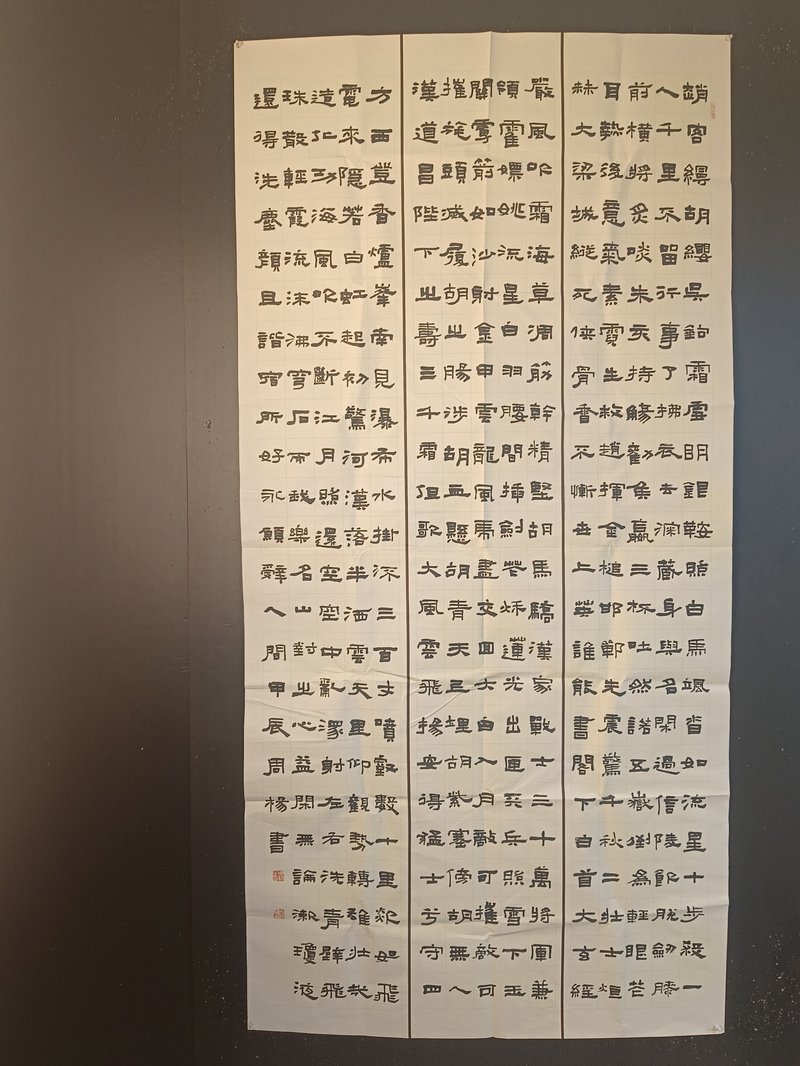 趙客縵胡纓吳鉤霜雪明銀鞍照白馬颯沓如流星十步殺一
人千里不留行事了拂衣去深藏身與名閑過信陵飲脫劍膝
前橫將炙啖朱亥持觴勸侯嬴三杯吐然諾五嶽倒為輕眼花
耳熱後意氣素霓生救趙揮金槌邯鄲先震驚千秋二壯士烜
赫大梁城縱死俠骨香不慚世上英誰能書閣下白首大玄經
嚴風吹霜海草凋筋幹精堅胡馬驕漢家戰士三十萬將軍兼
領霍嫖姚流星白羽腰間插劍花秋蓮光出匣天兵照雪下玉
關虜箭如沙射金甲雲龍風虎盡交回大白入月敵可摧敵可
摧旄頭滅履胡之腸涉胡血懸胡青天上埋胡紫塞傍胡無人
漢道昌陛下之壽三千霜但歌大風雲飛揚安得猛士兮守四
方西登香爐峯南見瀑布水掛流三百丈噴壑數十里欻如飛
電來隱若白虹起初驚河漢落半洒雲天里仰觀勢轉雄壯哉
造化功海風吹不斷江月照還空空中亂潀射左右洗青壁飛
珠散輕霞流沫沸穹石而我樂名山對之心益閑無論漱瓊液
還得洗塵顏且諧宿所好永願辭人間甲辰周楊書